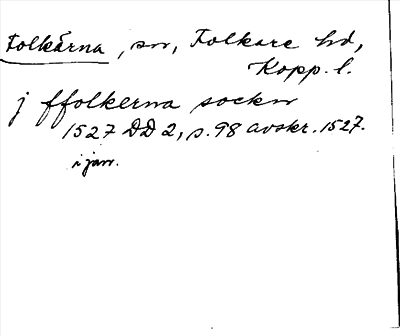 Folkärna, sn, Folkare hd,
Kopp. l.
j ffolkerna sockn
1527 DD 2, s. 98 avskr. 1527.
i jan.